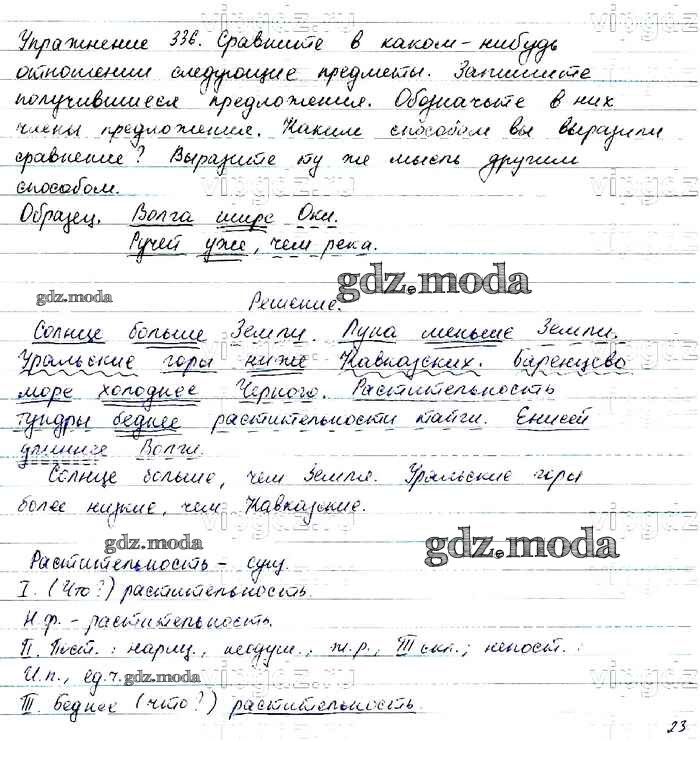 Упражнение 336. Сравните в каком-нибудь
отношении следующие предметы. Запишите
получившиеся предложения. Обозначьте в них
члены предложения. Каким способом вы выразили
сравнение? Выразите ту же мысль другим
способом.
Образец. Волга шире Оки.
Ручей уже, чем река.
gdz.moda
gdz.moda
Решение.
Солнце больше Земли. Луна меньше Земли.
Уральские горы ниже Кавказских. Баренцево
море холоднее Черного. Растительность
тундры беднее растительности тайги. Енисей
длиннее Волги.
Солнце больше, чем Земля. Уральские горы
более низкие, чем Кавказские.
gdz.moda
gdz.moda
Растительность – сущ.
I. (Что?) растительность.
Н.ф. – растительность.
II. Пост.: нариц., неодуш., ж.р., III скл.; непост.:
И.п., ед.ч.
gdz.moda
III. Беднее (что?) растительность.
23